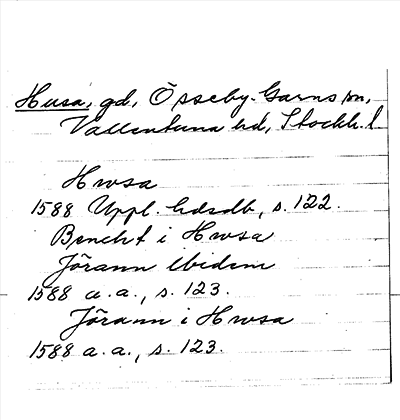 Husa, gd, Össeby-Garns sn,
Vallentuna hd, Stockh. l.
Hwsa
1588 Uppl. hdsdb, s. 122.
Bencht i Hwsa
Jörann Ibidem
1588 a.a., s. 123.
Jörann i Hwsa
1588 a.a., s. 123.